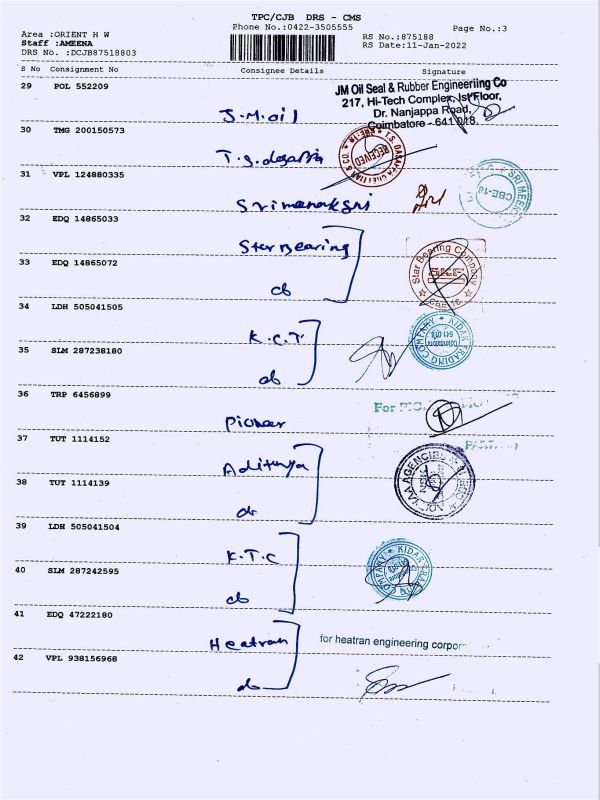 TPC/CJB DRS - CMS
Phone No.:0422-3505555
Page No.:3
Area :ORIENT H W
Staff :AMEENA
DRS No. :DCJB87518803
RS No.:875188
RS Date:11-Jan-2022
S No Consignment No Consignee Details Signature
29 POL 552209
J.M.oil
JM Oil Seal & Rubber Engineeriing Co
217, Hi-Tech Complex, Ist Floor,
Dr. Nanjappa Road,
Coimbatore - 641 018.
30 TMG 200150573
T.S. dasappa
T.S. DASAPPA CHETTIAR & CO.
RECEIVED
31 VPL 124880335
Sri
SRI MEEN
CBE-18
32 EDQ 14865033
Star Bearing
33 EDQ 14865072
do
Star Bearing Company
SKF
CBE-18
34 LDH 505041505
K.C.T
35 SLM 287238180
do
KIDAR TRADING COMPANY
Coimbatore
641 018
36 TRP 6456899
Pioneer
For
37 TUT 1114152
Aditya
38 TUT 1114139
do
AGENCIES
39 LDH 505041504
K.T.C
40 SLM 287242595
do
KIDAR TRADING COMPANY
41 EDQ 47222180
Heatran
for heatran engineering corpor
42 VPL 938156968
do